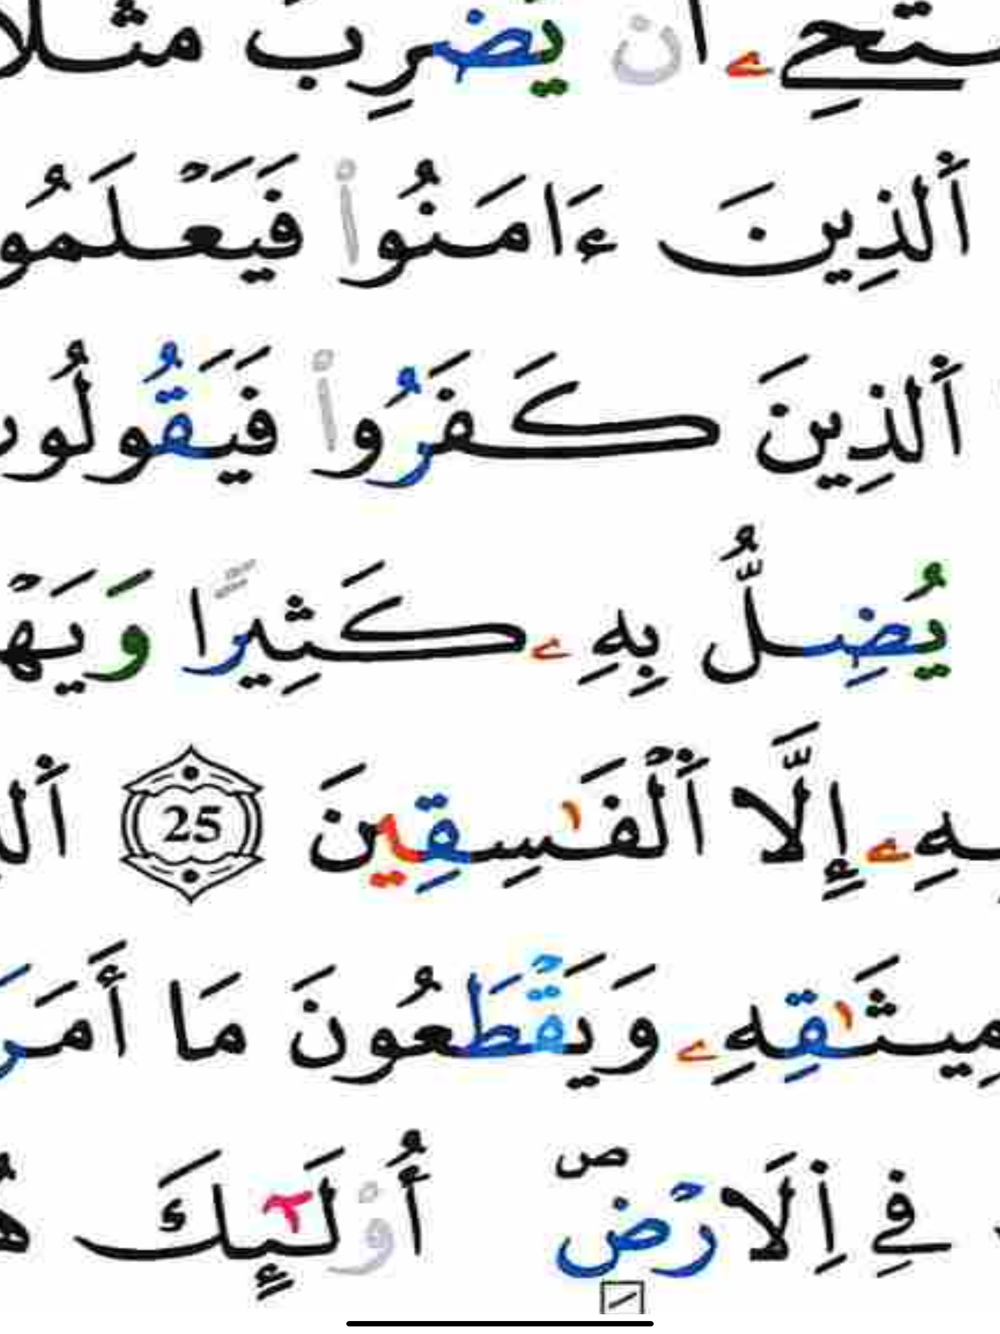 أَن يَضْرِبَ مَثَلًا
اَ۬لذِينَ ءَامَنُواْ فَيَعْلَمُو
اَ۬لذِينَ كَفَرُواْ فَيَقُولُو
يُضِلُّ بِهِۦ كَثِيرًا وَيَهْ
إِلَّا اَ۬لْفَٰسِقِينَ 25
مِيثَٰقِهِۦ وَيَقْطَعُونَ مَا أَمَرَ
فِے اِ۬لَارْضِ ص أُوْلَٰٓئِكَ